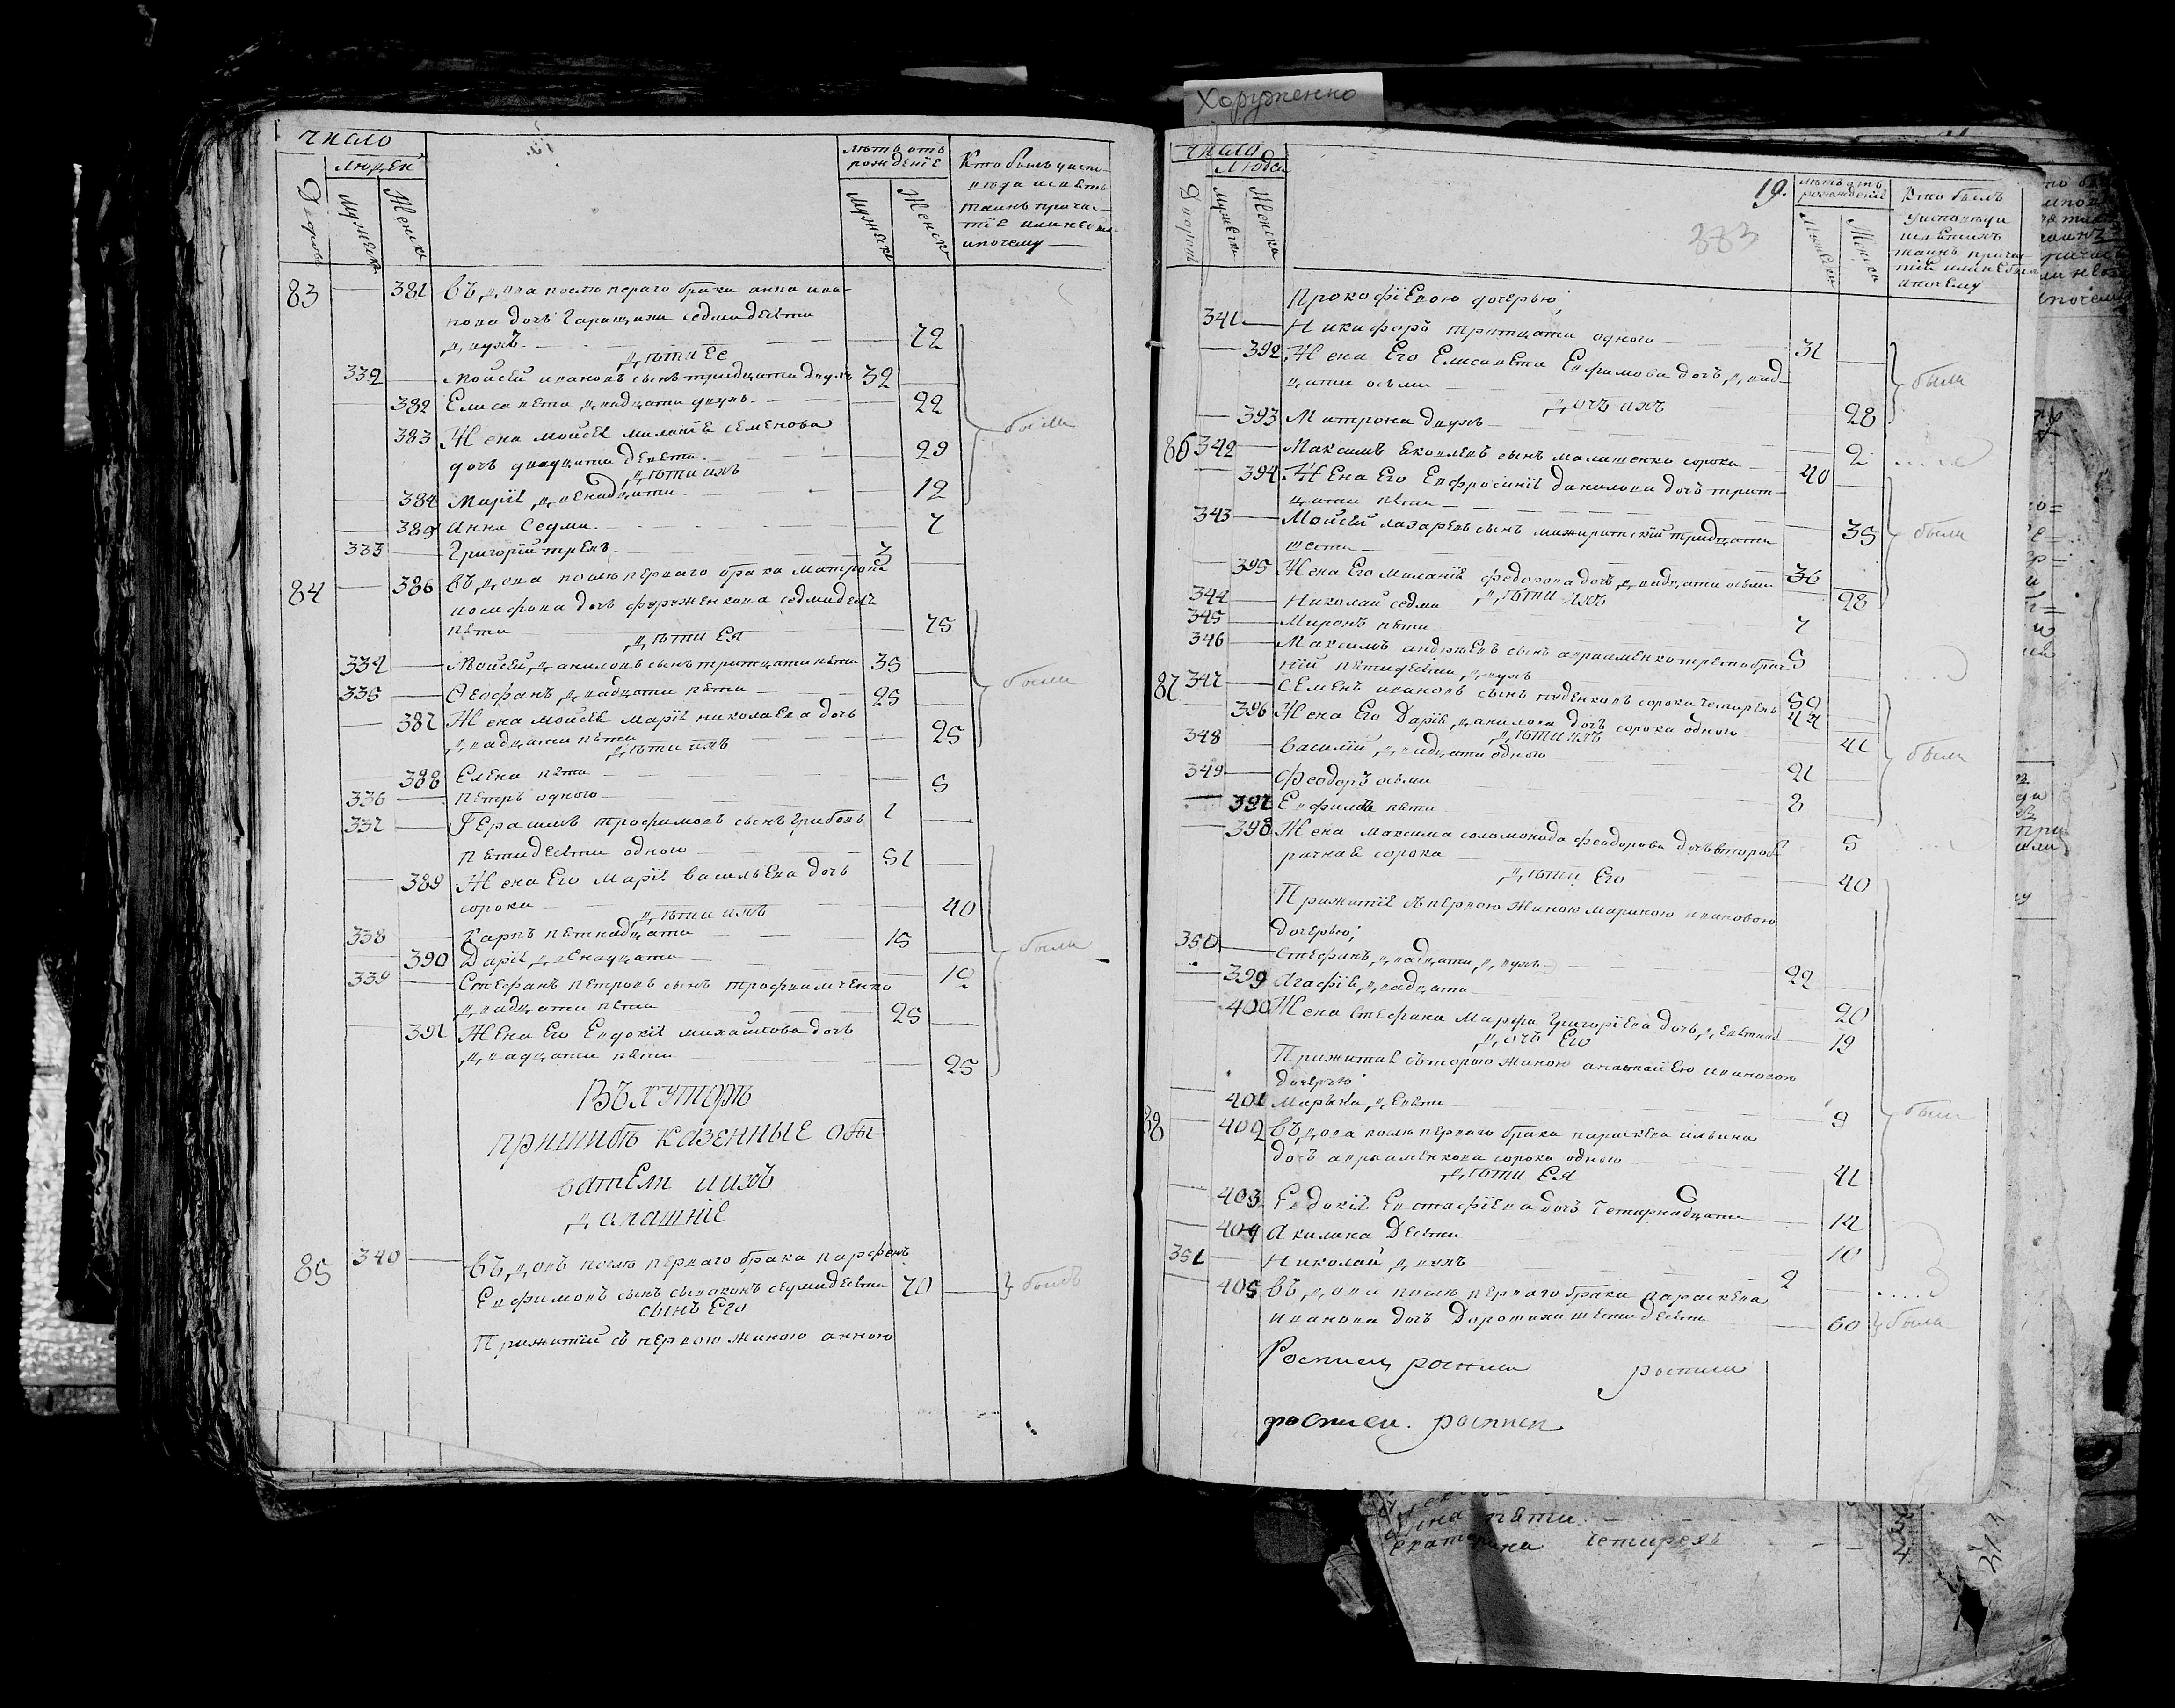 Хоруженко
число
людей
Дворовъ
Мужеска
Женска
лѣтъ отъ
рожденїѣ
Мужеска
Женска
Кто былъ уиспо-
таинъ прича-
ипочему
83 — 381 Въдова послѣ перваго брака анна ива-
нова дочь Гаращиха седмидесѣти
двухъ 72
дѣти ее
332 — Мойсей ивановъ сынъ тридцати двухъ 32
382 Елисавета двадцати двухъ 22
383 Жена мойсеѣ миланїѣ семенова
дочь двадцати девѣти 29
дѣти ихъ
384 Марїѣ двенадцати 12
385 Анна седми 7
333 — Григорїй трехъ 3
были
84 — 386 Въдова послѣ перваго брака матрона
иосифова дочь фуруженкова седмидесѣ
пѣти 75
дѣти Ея
334 — Мойсей даниловъ сынъ тритцати пѣти 35
335 — Феофанъ двадцати пѣти 25
387 Жена мойсеѣ марїѣ николаева дочь
двадцати пѣти 25
дѣти ихъ
388 Елена пѣти 5
336 — Петръ одного 1
были
337 — Герасимъ трофимовъ сынъ грибовъ
пѣтидесѣти одного 51
389 Жена Его марїѣ васильева дочь
сорока 40
дѣти ихъ
338 — Карпъ пѣтнадцати 15
390 Дарїѣ двенадцати 12
339 — Стефанъ петровъ сынъ трофимченко
двадцати пѣти 25
391 Жена Его Евдокїѣ михайлова дочь
двадцати пѣти 25
были
Въ хуторѣ
пришибѣ казенные обы-
ватели иихъ
домашнїе
85 340 — Въдовъ послѣ перваго брака парфенъ
Евфимовъ сынъ сываконъ седмидесѣти 70 — былъ
сынъ Его
Прижитїй съ первою жиною анною
число
людей
Дворовъ
Мужеска
Женска
19.
383
лѣтъ отъ
рожденїѣ
Мужеска
Женска
Кто былъ
таинъ прича-
ипочему
Прокофїевою дочерью
341 — Никифоръ тритцати одного 31
392 Жена Его Елисавета Ефимова дочь двад-
цати осьми 28
дочь ихъ
393 Матрона двухъ 2
были
86 342 — Максимъ Яковлевъ сынъ малашенко сорока 40
394 Жена Его Евфросинїѣ данилова дочь трит-
цати пѣти 35
343 — Мойсей лазаревъ сынъ мижиритскїй тридцати
шести 36
395 Жена Его миланїѣ федорова дочь двадцати осьми 28
дѣти ихъ
344 — Николай седми 7
345 — Миронъ пѣти 5
были
346 — Максимъ андрѣевъ сынъ авраменко третобрач-
нїй пѣтидесѣти двухъ 52
87 347 — Семенъ ивановъ сынъ руденковъ сорока четырехъ 44
396 Жена Его Дарїѣ данилова дочь сорока одного 41
дѣти ихъ
348 — Василїй двадцати одного 21
349 — Феодоръ осьми 8
397 Евфимїѣ пѣти 5
были
398 Жена максима соломонида феодорова дочь второб-
рачнаѣ сорока 40
дѣти Его
Прижитїѣ съ первою жиною мариною ивановою
дочерью;
350 — Стефанъ двадцати двухъ 22
399 Агафїѣ двадцати 20
400 Жена стефана Марфа григорїева дочь девѣтнад 19
дочь Его
Прижитаѣ съ второю жиною анастасїею ивановою
дочерью
401 Марѣна девѣти 9
были
88 — 402 Въдова послѣ перваго брака параскева ильина
дочь авраменкова сорока одного 41
дѣти Ея
403 Евдокїѣ Евстафїева дочь четырнадцати 14
404 Акилина Десѣти 10
351 — Николай двухъ 2
405 Въдова послѣ перваго брака параскева
иванова дочь Доротина шестидесѣти 60 была
росписи росписи
росписи. росписи
пѣти
Екатерина четирехъ